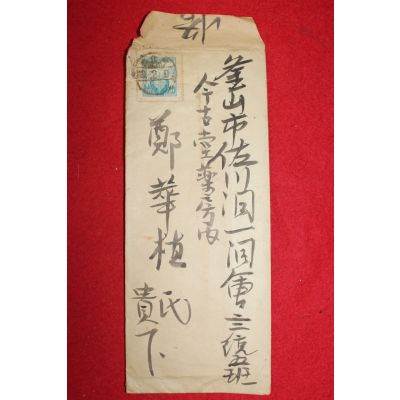 釜山市佐川洞一洞會三統五班
今古堂藥房內
鄭華植氏
貴下